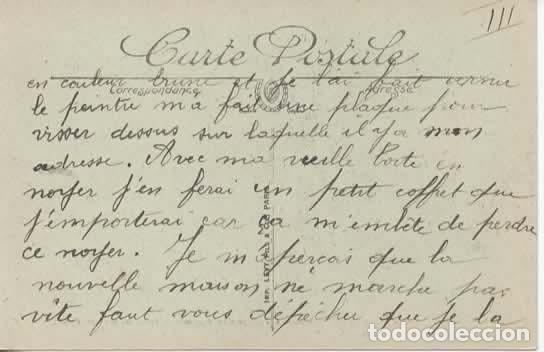 III
Carte Postale
Correspondance
Adresse
en couleur brune et je l'ai fait vernir
le peintre m'a fait une plaque pour
visser dessus sur laquelle il y a mon
adresse. Avec ma vieille boite en
noyer j'en ferai un petit coffret que
j'emporterai car ça m'embête de perdre
ce noyer. Je m'aperçois que la
nouvelle maison ne marche pas
vite faut vous dépêcher que je la
IMP. LEVY FILS & CIE PARIS
todocoleccion
todocoleccion.net